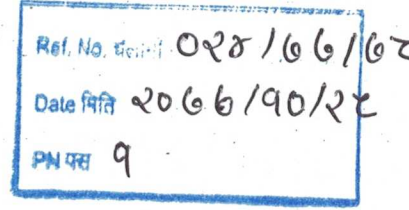 Ref. No. चलानी ०२४/७७/७८
Date मिति २०७७/१०/२८
PN पस १